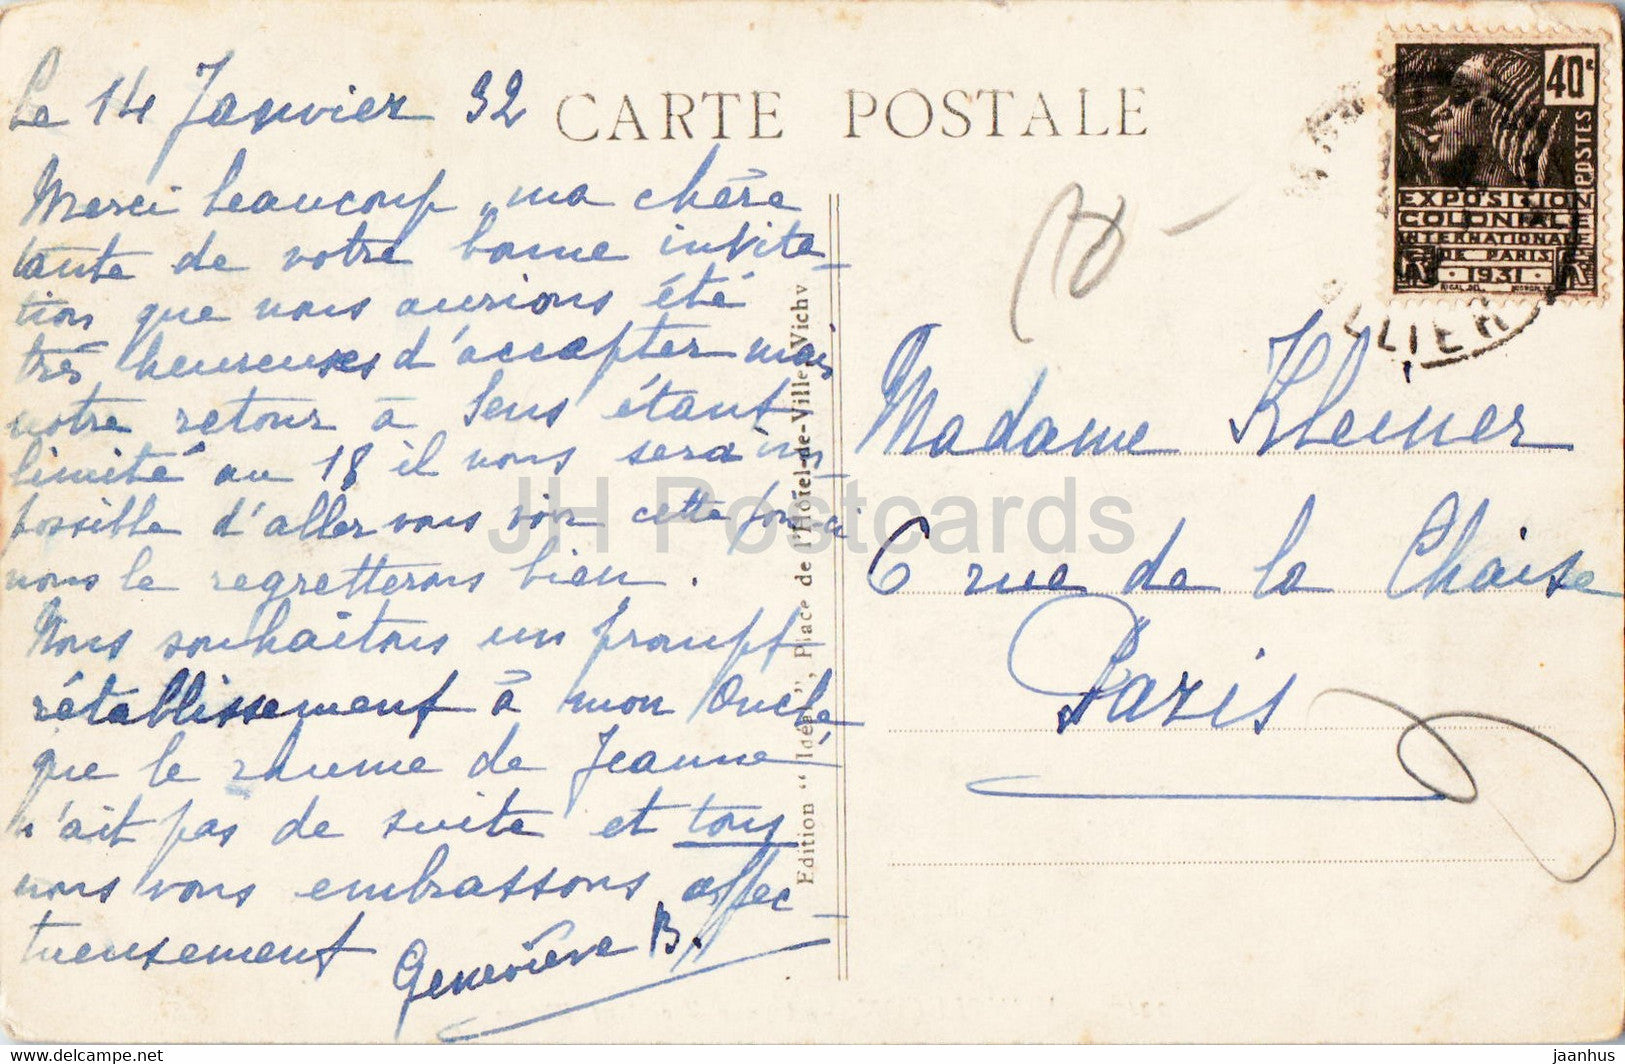 Le 14 Janvier 32
Merci beaucoup, ma chère
tante de votre bonne invita-
tion que nous aurions été
très heureuses d'accepter mais
notre retour à Sens étant
limité au 18 il nous sera im
possible d'aller vous voir cette fois-ci
nous le regretterons bien.
Nous souhaitons un prompt
rétablissement à mon Oncle
que le rhume de Jeanne
n'ait pas de suite et tous
nous vous embrassons affec-
tueusement
Geneviève B.
CARTE POSTALE
Edition "Idéal", Place de l'Hôtel-de-Ville, Vichy
40c
POSTES
EXPOSITION
COLONIALE
INTERNATIONALE
DE PARIS
1931
LLIER
Madame Kleiner
6 rue de la Chaise
Paris
JH Postcards
https://jhpostcards.com
jaanhus